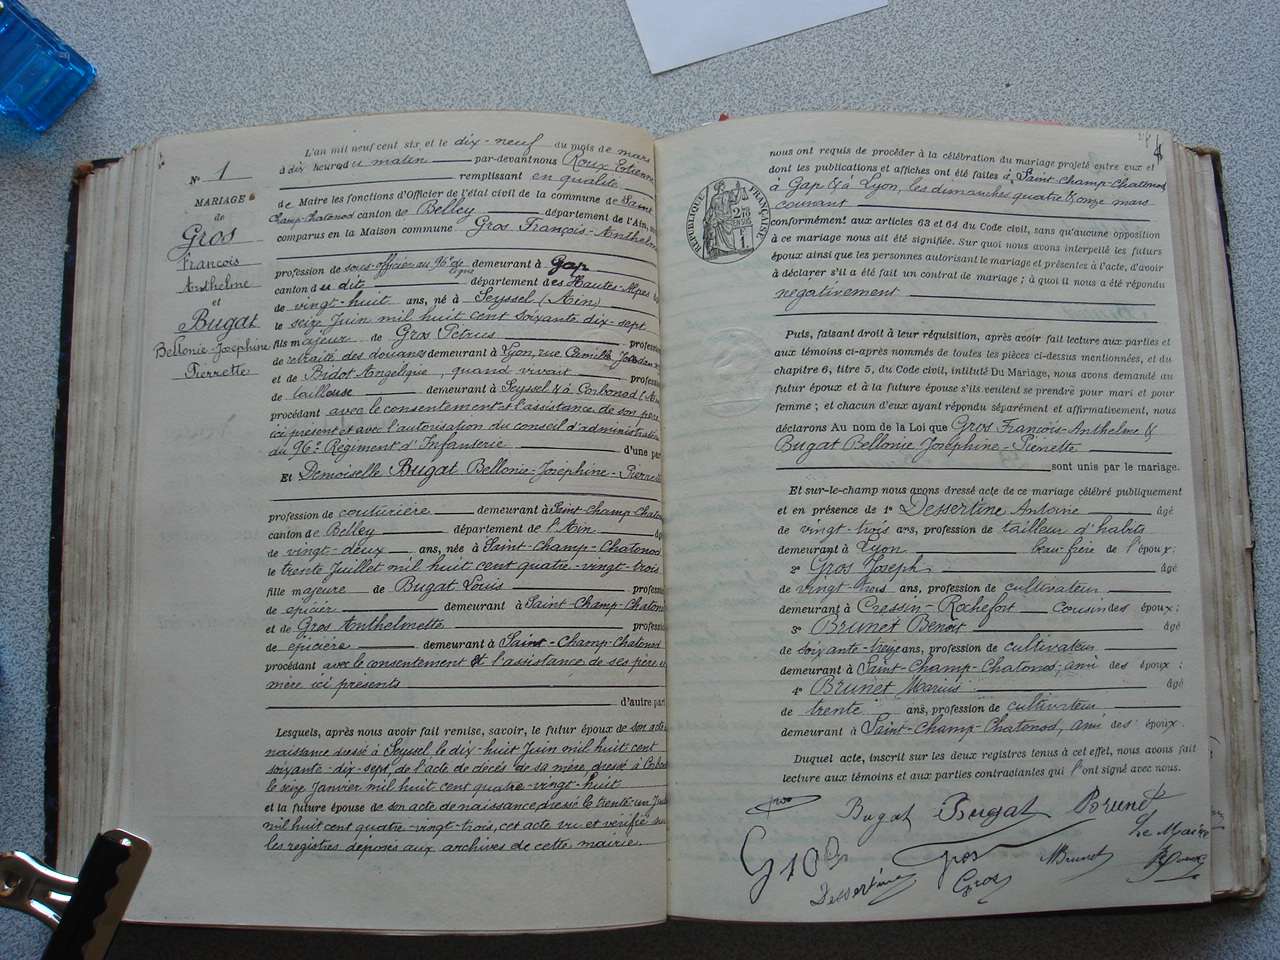 N° 1
MARIAGE
de
Gros
François
Anthelme
et
Bugat
Bellonie-Joséphine
Pierrette
L'an mil neuf cent six et le dix-neuf du mois de mars
à dix heures du matin par-devant nous Roux Etienne
remplissant en qualité
de Maire les fonctions d'Officier de l'état civil de la commune de Saint
Champ-Chatonod canton de Belley département de l'Ain,
comparus en la Maison commune Gros François-Anthelme
profession de sous-officier au 96e de ligne demeurant à Gap
canton du dit département des Hautes-Alpes
de vingt-huit ans, né à Seyssel (Ain)
le seize Juin mil huit cent soixante dix-sept
fils majeur de Gros Pétrus profession
de retraité des douanes demeurant à Lyon, rue Camille Jordan
et de Bidot Angélique, quand vivait profession
de tailleuse demeurant à Seyssel & à Corbonod (Ain
procédant avec le consentement et l'assistance de son père
ici présent et avec l'autorisation du conseil d'administration
du 96e Régiment d'Infanterie d'une part
Et Demoiselle Bugat Bellonie-Joséphine-Pierrette
profession de couturière demeurant à Saint-Champ-Chatonod
canton de Belley département de l'Ain
de vingt-deux ans, née à Saint-Champ-Chatonod
le trente Juillet mil huit cent quatre-vingt-trois
fille majeure de Bugat Louis profession
de épicier demeurant à Saint-Champ-Chatonod
et de Gros Anthelmette profession
de épicière demeurant à Saint-Champ-Chatonod
procédant avec le consentement et l'assistance de ses père et
mère ici présents
d'autre part
Lesquels, après nous avoir fait remise, savoir, le futur époux de son acte
naissance dressé à Seyssel le dix-huit Juin mil huit cent
soixante-dix-sept, de l'acte de décès de sa mère, dressé à Corbonod
le seize Janvier mil huit cent quatre-vingt-huit
et la future épouse de son acte de naissance, dressé le trente-un Juillet
mil huit cent quatre-vingt-trois, cet acte vu et vérifié sur
les registres déposés aux archives de cette mairie
RÉPUBLIQUE FRANÇAISE
nous ont requis de procéder à la célébration du mariage projeté entre eux et
dont les publications et affiches ont été faites à Saint-Champ-Chatonod
à Gap & à Lyon, les dimanches quatre & onze mars
courant
conformément aux articles 63 et 64 du Code civil, sans qu'aucune opposition
à ce mariage nous ait été signifiée. Sur quoi nous avons interpellé les futurs
époux ainsi que les personnes autorisant le mariage et présentes à l'acte, d'avoir
à déclarer s'il a été fait un contrat de mariage ; à quoi il nous a été répondu
négativement
Puis, faisant droit à leur réquisition, après avoir fait lecture aux parties et
aux témoins ci-après nommés de toutes les pièces ci-dessus mentionnées, et du
chapitre 6, titre 5, du Code civil, intitulé Du Mariage, nous avons demandé au
futur époux et à la future épouse s'ils veulent se prendre pour mari et pour
femme ; et chacun d'eux ayant répondu séparément et affirmativement, nous
déclarons Au nom de la Loi que Gros François-Anthelme &
Bugat Bellonie Joséphine-Pierrette
sont unis par le mariage.
Et sur-le-champ nous avons dressé acte de ce mariage célébré publiquement
et en présence de 1° Dessertine Antoine âgé
de vingt-trois ans, profession de tailleur d'habits
demeurant à Lyon beau-frère de l'époux;
2° Gros Joseph âgé
de vingt-trois ans, profession de cultivateur
demeurant à Cressin-Rochefort Cousin des époux;
3° Brunet Benoît âgé
de soixante-treize ans, profession de cultivateur
demeurant à Saint-Champ-Chatonod, ami des époux;
4° Brunet Marius âgé
de trente ans, profession de cultivateur
demeurant à Saint-Champ-Chatonod, ami des époux.
Duquel acte, inscrit sur les deux registres tenus à cet effet, nous avons fait
lecture aux témoins et aux parties contractantes qui l'ont signé avec nous.
Gros Bugat Bugat Brunet
Le Maire
Gros Gros MBrunet Roux
Dessertine Gros